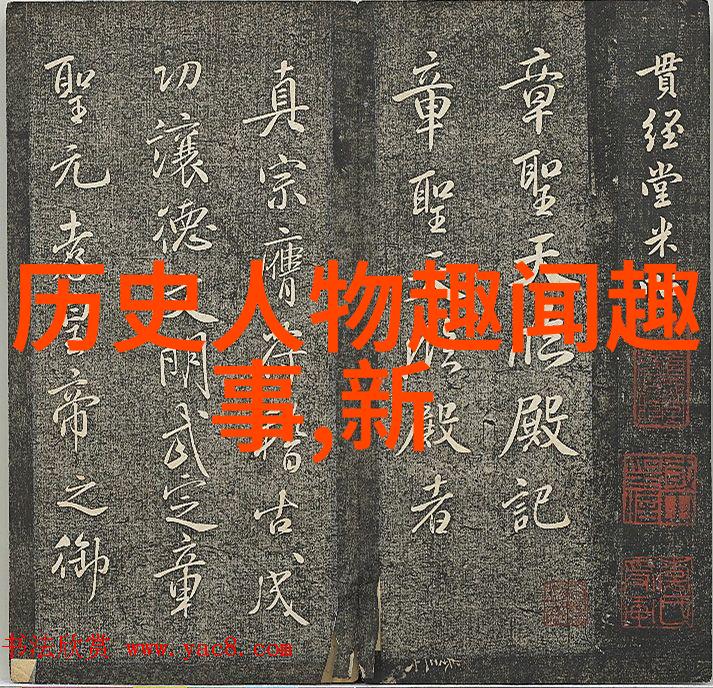 貫経堂米
章聖天臨殿記
章聖天臨殿者
真宗膺符稽古成
功讓德文明武定章
聖元孝皇帝之御
历史人物趣闻趣
事,新
书法欣赏 www.yac8.com